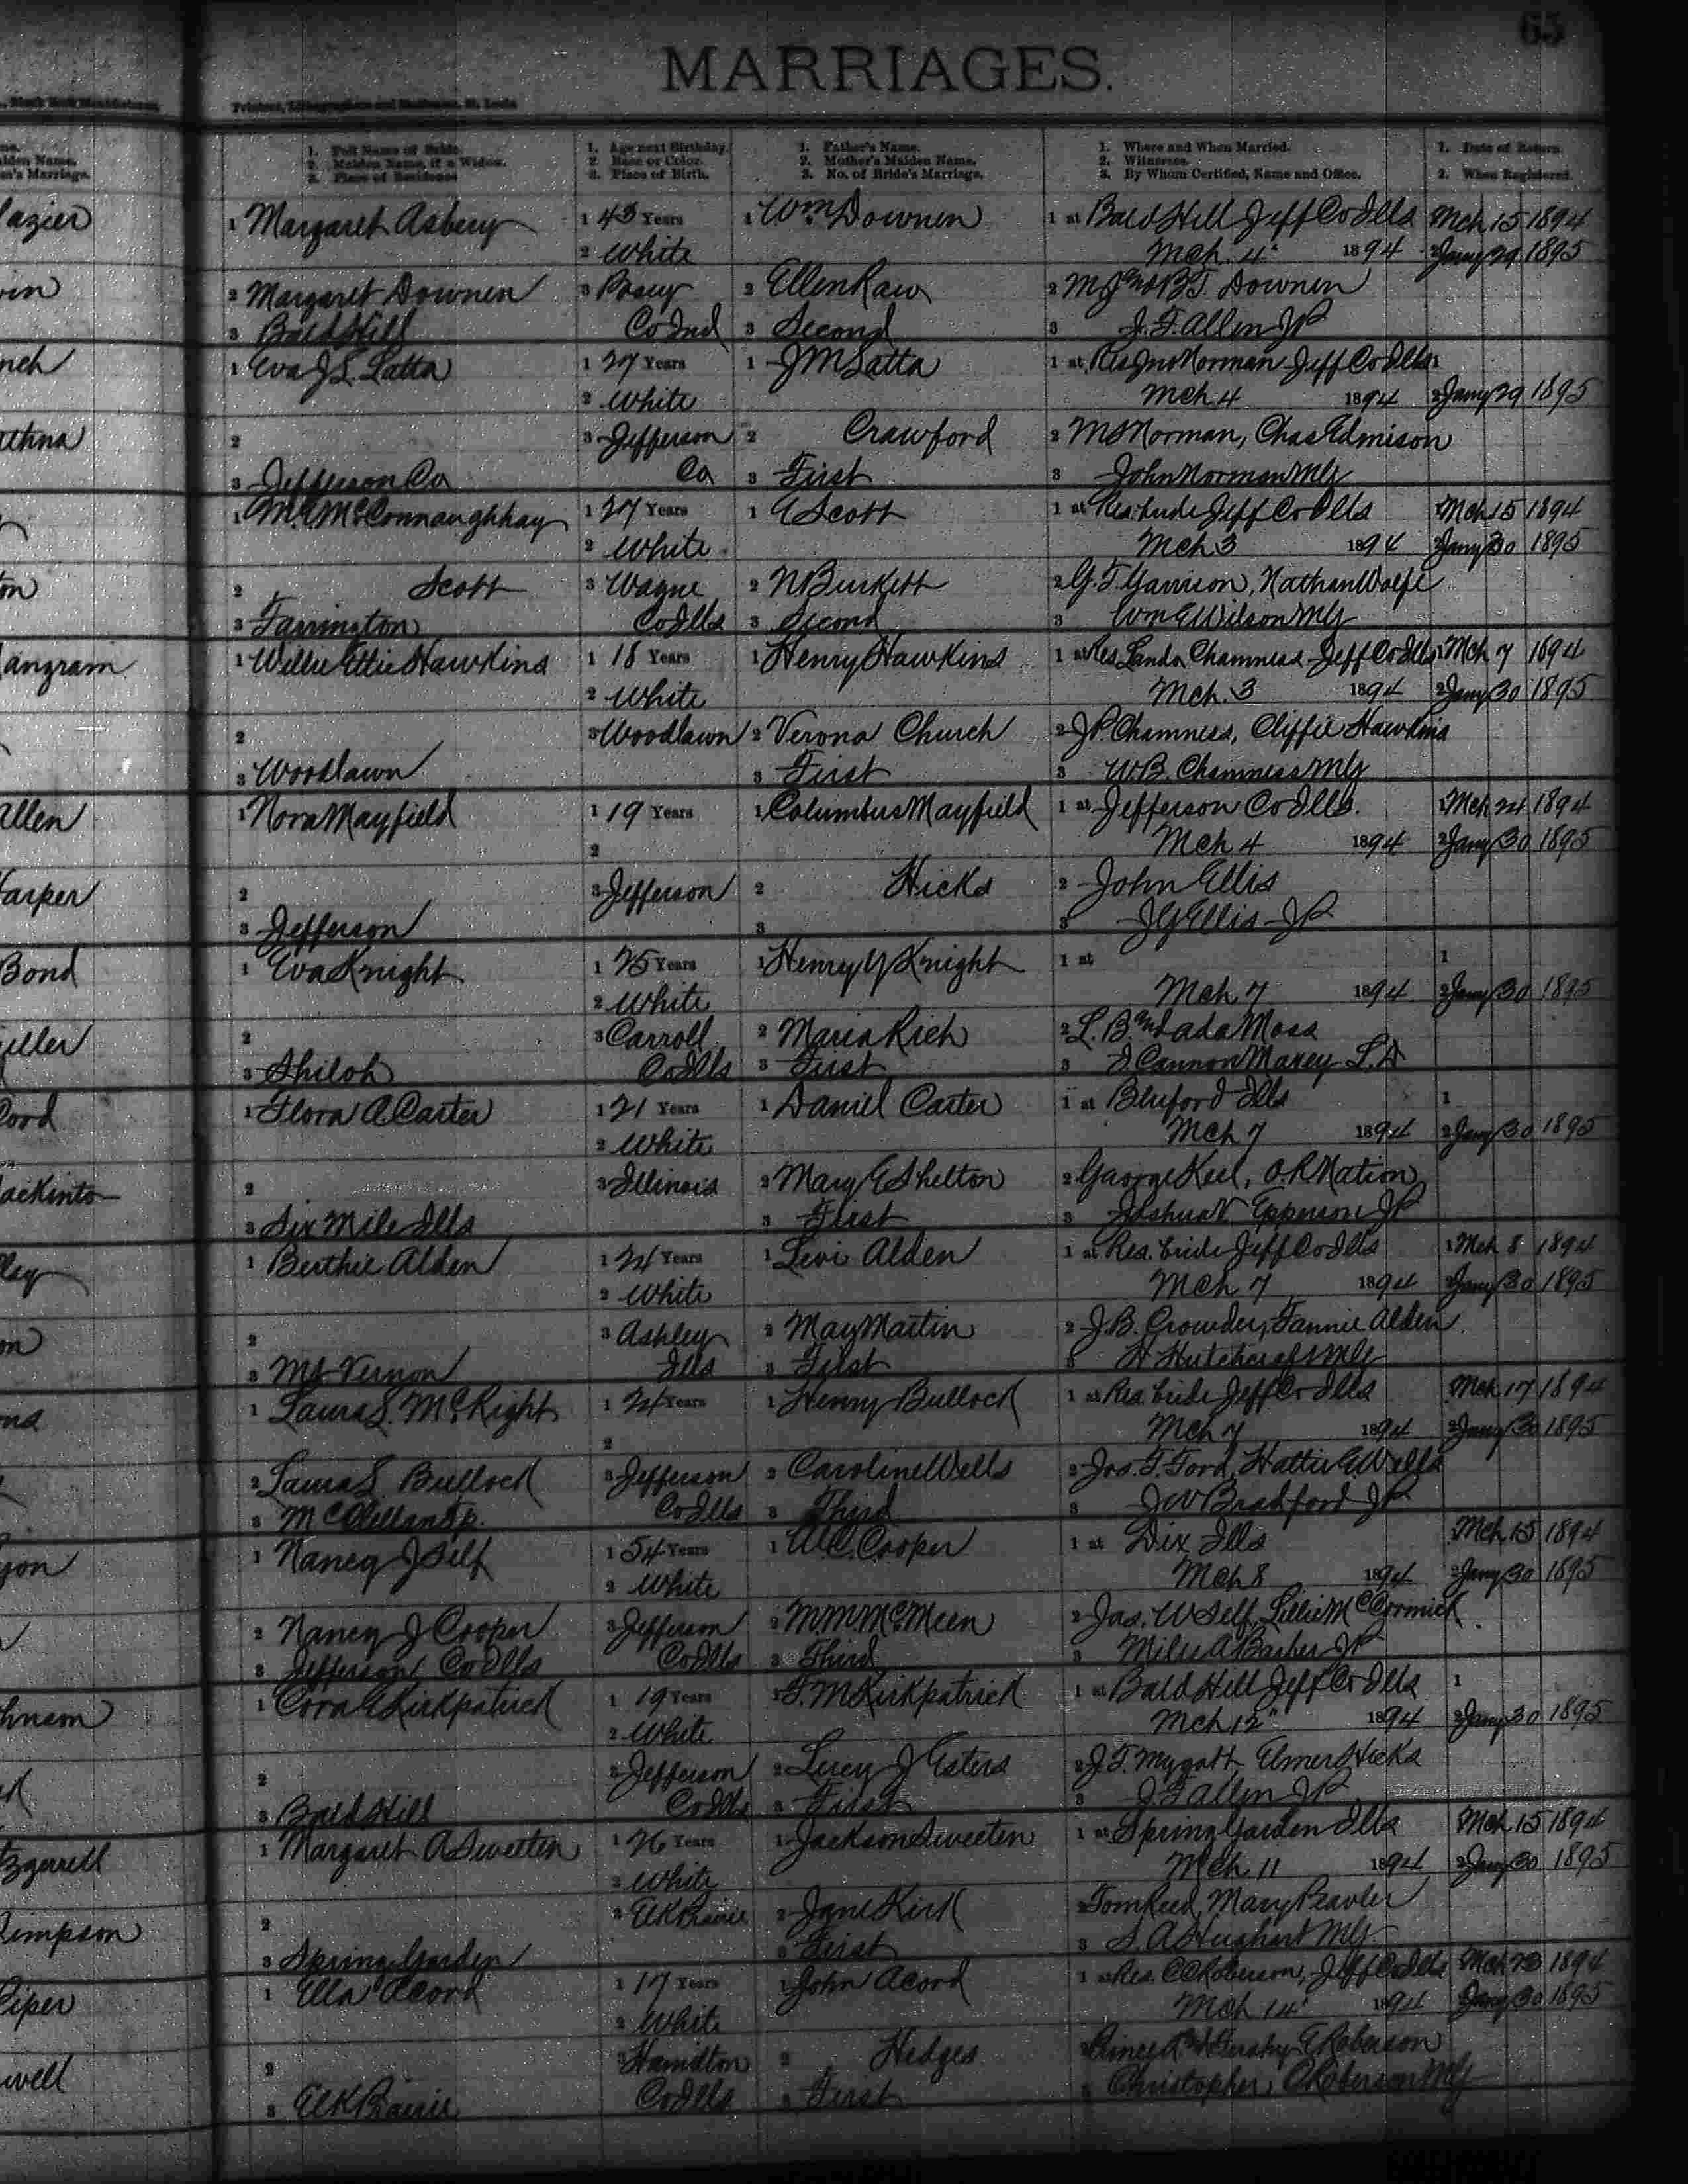 65
MARRIAGES.
Printers, Lithographers and Stationers, St. Louis
1. Full Name of Bride. 2. Maiden Name, if a Widow. 3. Place of Residence
1. Age next Birthday. 2. Race or Color. 3. Place of Birth.
1. Father's Name. 2. Mother's Maiden Name. 3. No. of Bride's Marriage.
1. Where and When Married. 2. Witnesses. 3. By Whom Certified, Name and Office.
1. Date of Return. 2. When Registered.
1 Margaret Asbery 1 43 Years 1 Wm Downen 1 at Bald Hill Jeff Co Ills Mch 15 1894
2 White Mch. 4 1894 2 Jany 29 1895
2 Margaret Downen 3 Posey 2 Ellen Raw 2 M Downen
3 Bald Hill Co Ind 3 Second 3 J. F. Allen JP
1 Eva J S. Latta 1 27 Years 1 J M Latta 1 at Res Jno Norman Jeff Co Ills 1
2 White Mch 4 1894 2 Jany 29 1895
2 3 Jefferson 2 Crawford 2 M Norman, Chas Edmison
3 Jefferson Co Co 3 First 3 John Norman Mg
1 McConnaughhay 1 27 Years 1 E Scott 1 at Res bride Jeff Co Ills 1 Mch 15 1894
2 White Mch 3 1894 2 Jany 30 1895
2 Scott 3 Wayne 2 N Burkett 2 G. F. Garrison, Nathan Wolfe
3 Farrington Co Ills 3 Second 3 Wm E Wilson Mg
1 Willie Ettie Hawkins 1 18 Years 1 Henry Hawkins 1 at Res Chamness Jeff Co Ills 1 Mch 7 1894
2 White Mch. 3 1894 2 Jany 30 1895
2 3 Woodlawn 2 Verona Church 2 J P. Chamness, Cliffie Hawkins
3 Woodlawn 3 First 3 W. B. Chamness Mg
1 Nora Mayfield 1 19 Years 1 Columbus Mayfield 1 at Jefferson Co Ills. 1 Mch 24 1894
2 Mch 4 1894 2 Jany 30 1895
2 3 Jefferson 2 Hicks 2 John Ellis
3 Jefferson 3 3 J G Ellis JP
1 Eva Knight 1 25 Years 1 Henry Y Knight 1 at 1
2 White Mch 7 1894 2 Jany 30 1895
2 3 Carroll 2 Maria Rich 2 L. B. and Ada Moss
3 Shiloh Co Ills 3 First 3 Cannon Maxey
1 Flora A Carter 1 21 Years 1 Daniel Carter 1 at Bluford Ills 1
2 White Mch 7 1894 2 Jany 30 1895
2 3 Illinois 2 Mary E Shelton 2 George Keel, O. R Nation
3 Six Mile Ills 3 First 3 Joshua V Epperson JP
1 Berthie Alden 1 24 Years 1 Levi Alden 1 at Res. bride Jeff Co Ills 1 Mch 8 1894
2 White Mch 7 1894 2 Jany 30 1895
2 3 Ashley 2 May Martin 2 J. B. Crowder, Fannie Alden
3 Mt Vernon Ills 3 First 3 H Hutchcraft Mg
1 Laura S. McRight 1 24 Years 1 Henry Bullock 1 at Res. bride Jeff Co Ills Mch 17 1894
2 Mch 7 1894 2 Jany 30 1895
2 Laura S. Bullock 3 Jefferson 2 Caroline Wells 2 Jos. T. Ford, Hattie E. Wells
3 McClelland Tp. Co Ills 3 Third 3 J W Bradford JP
1 Nancy J Self 1 54 Years 1 Cooper 1 at Dix Ills Mch 15 1894
2 White Mch 8 1894 2 Jany 30 1895
2 Nancy J Cooper 3 Jefferson 2 M. M. McMeen 2 Jas. W Self, Lillie McCormick
3 Jefferson Co Ills Co Ills 3 Third 3 Miles A Barber JP
1 Cora E Kirkpatrick 1 19 Years 1 F. M Kirkpatrick 1 at Bald Hill Jeff Co Ills 1
2 White Mch 12 1894 2 Jany 30 1895
2 3 Jefferson 2 Lucy J Esters 2 J. F. Mygatt Elmer Hicks
3 Bald Hill Co Ills 3 First 3 J F Allen JP
1 Margaret A Sweeten 1 26 Years 1 Jackson Sweeten 1 at Spring Garden Ills Mch 15 1894
2 White Mch 11 1894 2 Jany 30 1895
2 3 Elk Prairie 2 Jane Kirk 2 Tom Reed, Mary
3 Spring Garden 3 First 3 S. A. Mg
1 Ella Acord 1 17 Years 1 John Acord 1 at Res. C C Roberson, Jeff Co Ills Mch 1894
2 White Mch 14 1894 Jany 30 1895
2 3 Hamilton 2 Hedges E Roberson
3 Elk Prairie Co Ills 3 First 3 Christopher C Roberson Mg